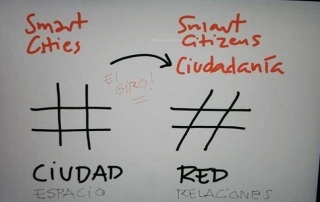 Smart
Cities
Smart
Citizens
Ciudadanía
El
GIRO!
CIUDAD
ESPACIO
RED
RELACIONES